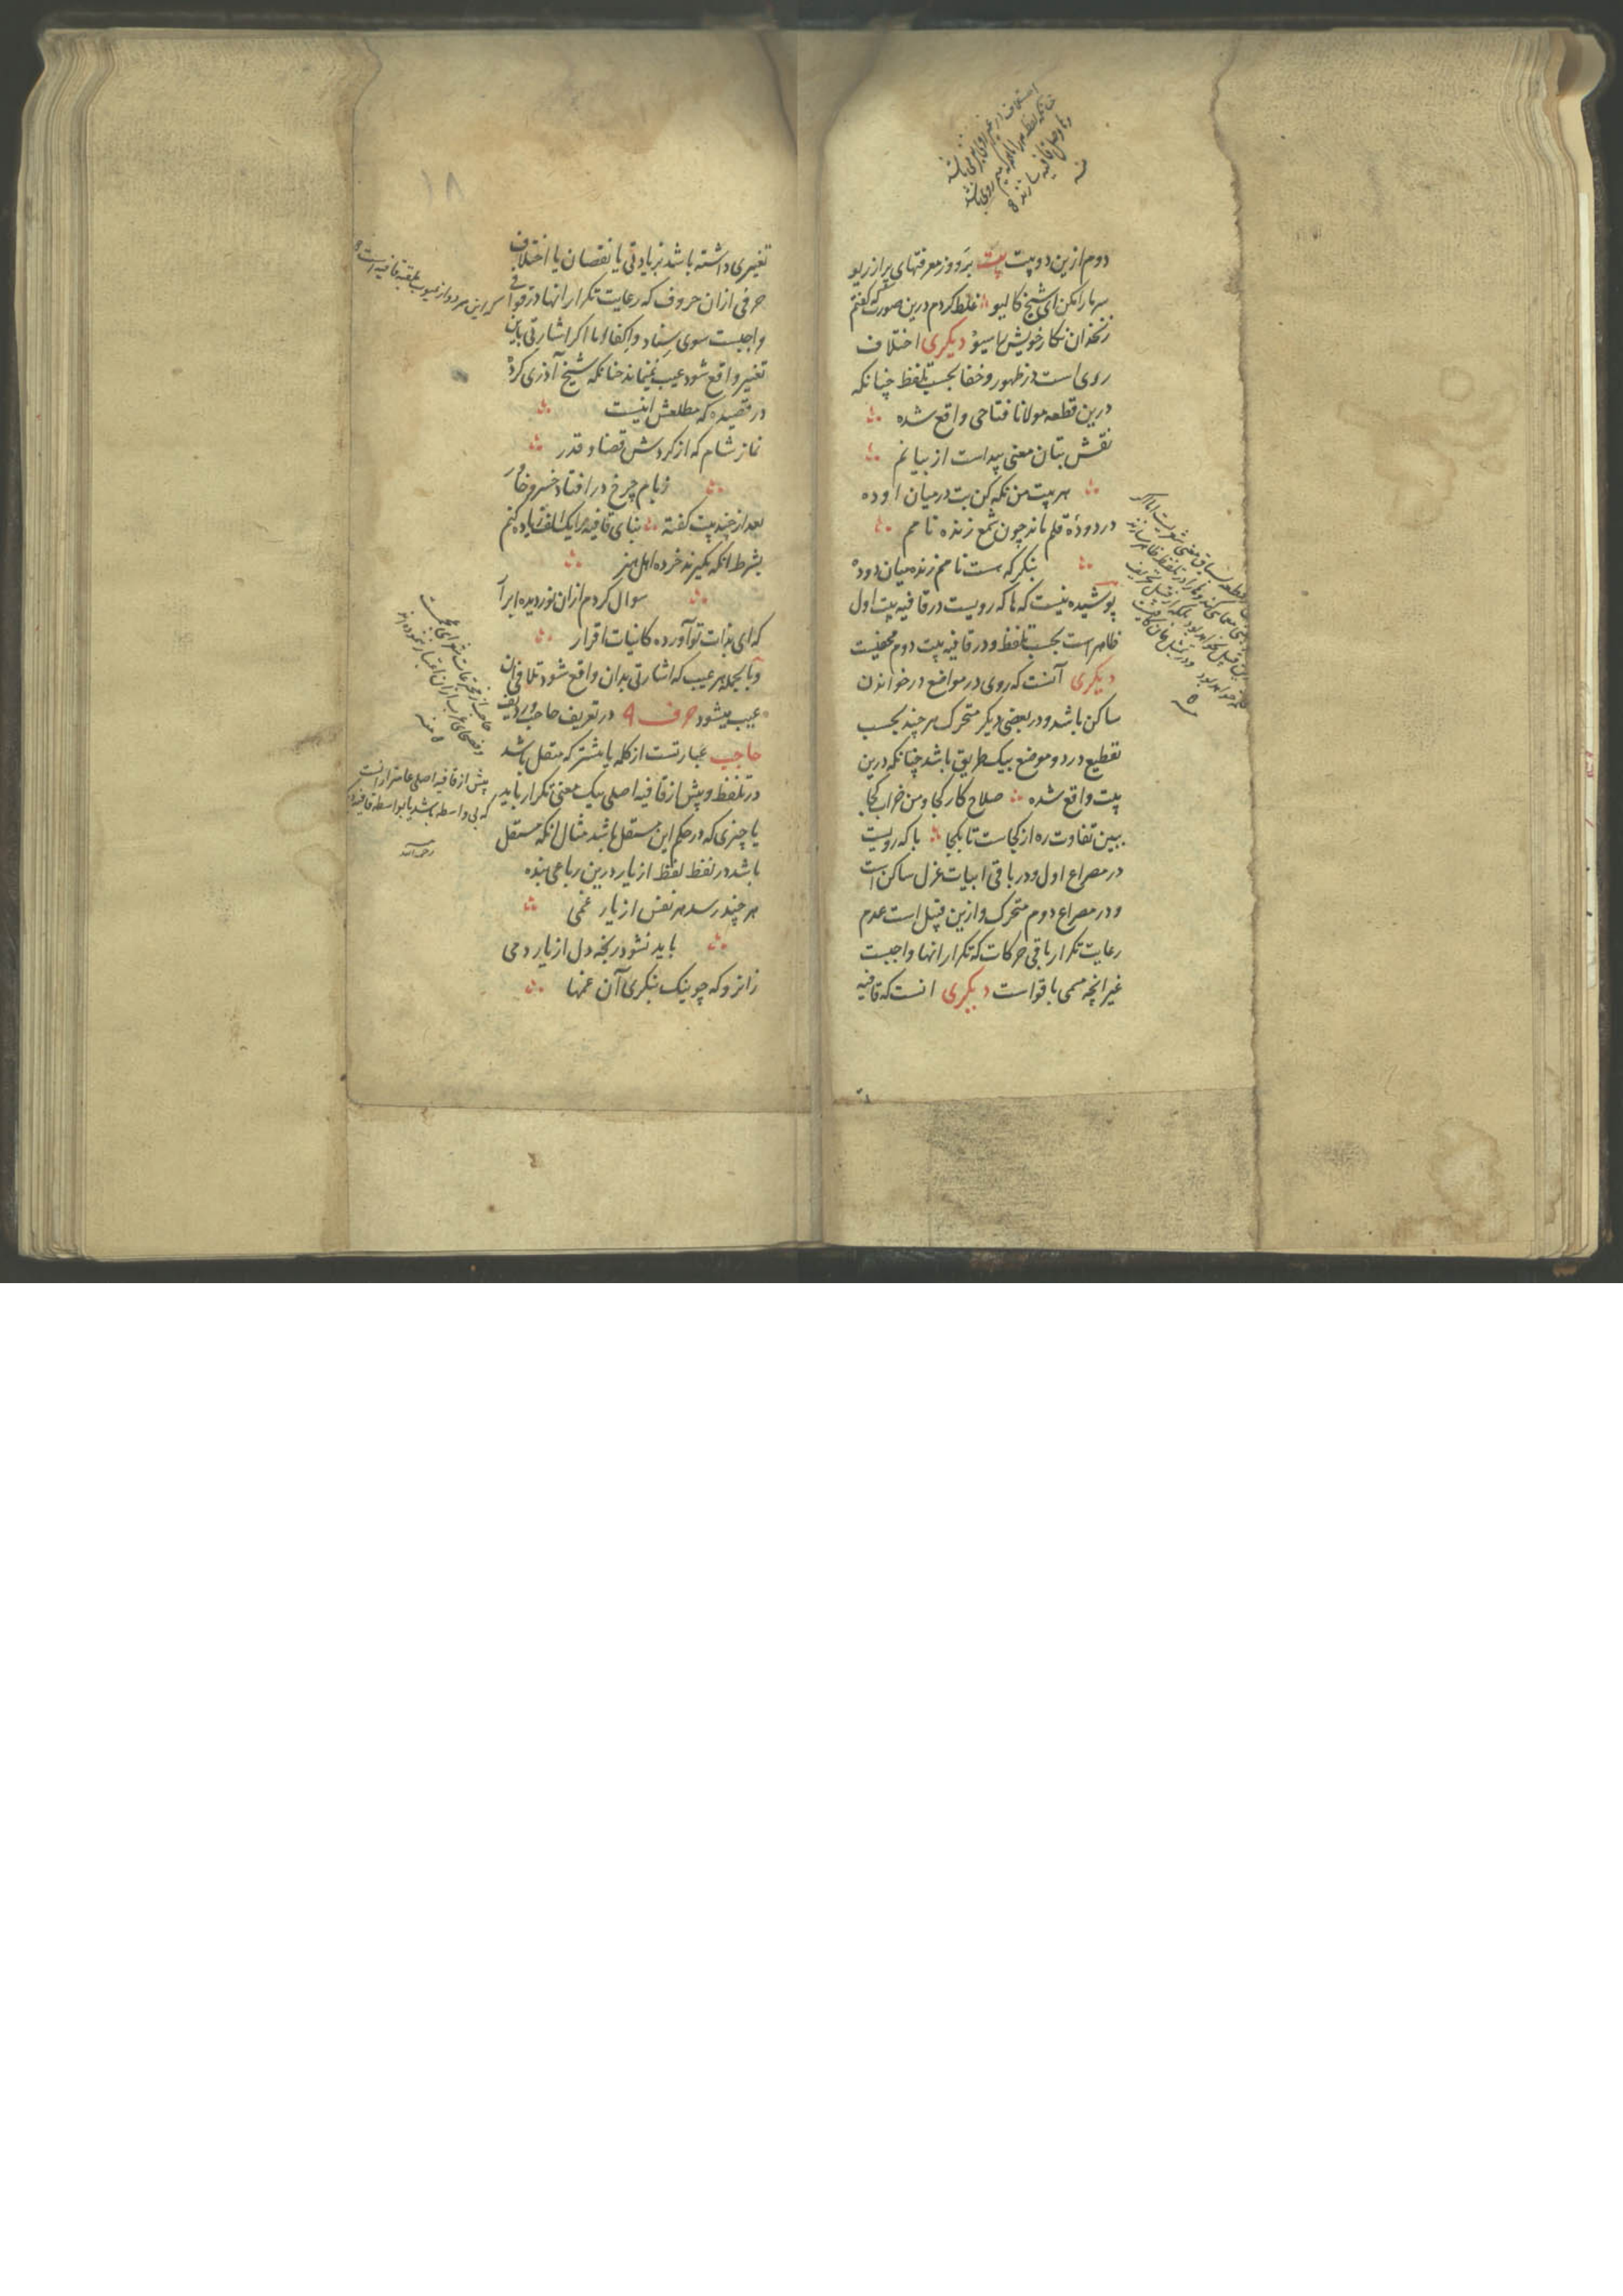 دوم ازین دو بیت بیت برو وز معرفتهای پر از ریو
سر ما را مکن ای شیخ کالیو غلط کردم درین صورت که گفتم
زنخدان نکار خویش را سیو دیکری اختلاف
روی است در ظهور و خفا بحسب تلفظ چنانکه
درین قطعه مولانا فتاحی واقع شده
نقش بتان معنی پیداست از بیانم
هر بیت من نکه کن بت در میان او ده
در دوده قلم ماند چون شمع زنده نامم
بنکر که هست نامم زنده میان دوده
پوشیده نیست که ها که رویست در قافیه بیت اول
ظاهر است بحسب تلفظ و در قافیه بیت دوم مخفیست
دیکری آنست که روی در مواضع در خواندن
ساکن باشد و در بعضی دیکر متحرک هر چند بحسب
تقطیع در دو موضع بیک طریق باشد چنانکه درین
بیت واقع شده صلاح کار کجا و من خراب کجا
ببین تفاوت ره از کجاست تا بکجا با که رویست
در مصراع اول و در باقی ابیات غزل ساکن است
و در مصراع دوم متحرک و ازین قبیل است عدم
رعایت تکرار باقی حرکات که تکرار انها واجبست
غیر انچه مسمی باقواست دیکری انست که قافیه
تغیری داشته باشد بزیادتی یا نقصان یا اختلاف
حرفی ازان حروف که رعایت تکرار انها در قوافی
واجبست سوی سناد و اکفا اما اکر اشارتی باین
تغییر واقع شود عیب نمی‌ماند چنانکه شیخ آذری کرده
در قصیده که مطلعش اینست
نماز شام که از کردش قضا و قدر
ز بام چرخ در افتاد خسرو خاور
بعد از چند بیت کفته بنای قافیه را یک الف زیاده کنم
بشرط انکه نکیرند خرده اهل هنر
سوال کردم ازان نور دیده ابرار
که ای بذات تو آورده کاینات اقرار
و بالجمله هر عیب که اشارتی بدان واقع شود تلافی ان
عیب میشود حرف ۹ در تعریف حاجب و ردیف
حاجب عبارتست از کلمه یا بیشتر که مستقل باشد
در تلفظ و پیش از قافیه اصلی بیک معنی تکرار یابد
یا چیزی که در حکم این مستقل باشد مثال انکه مستقل
باشد در لفظ لفظ از یار درین رباعی بنده
هر چند رسد هر نفس از یار غمی
باید نشود رنجه دل از یار دمی
زانرو که چو نیک بنکری آن غمها
که این هر دو از عیوب ملقبه قافیه است
حاجب از مخترعات شعرای عجمست
و فصحای عرب ازان اعتبار ننموده اند
منه
پیش از قافیه اصلی عامتر ازانست
که بی واسطه باشد یا بواسطه قافیه
رحمه الله